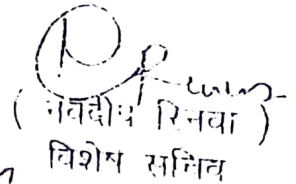 ( नवदीप रिनवा )
विशेष सचिव